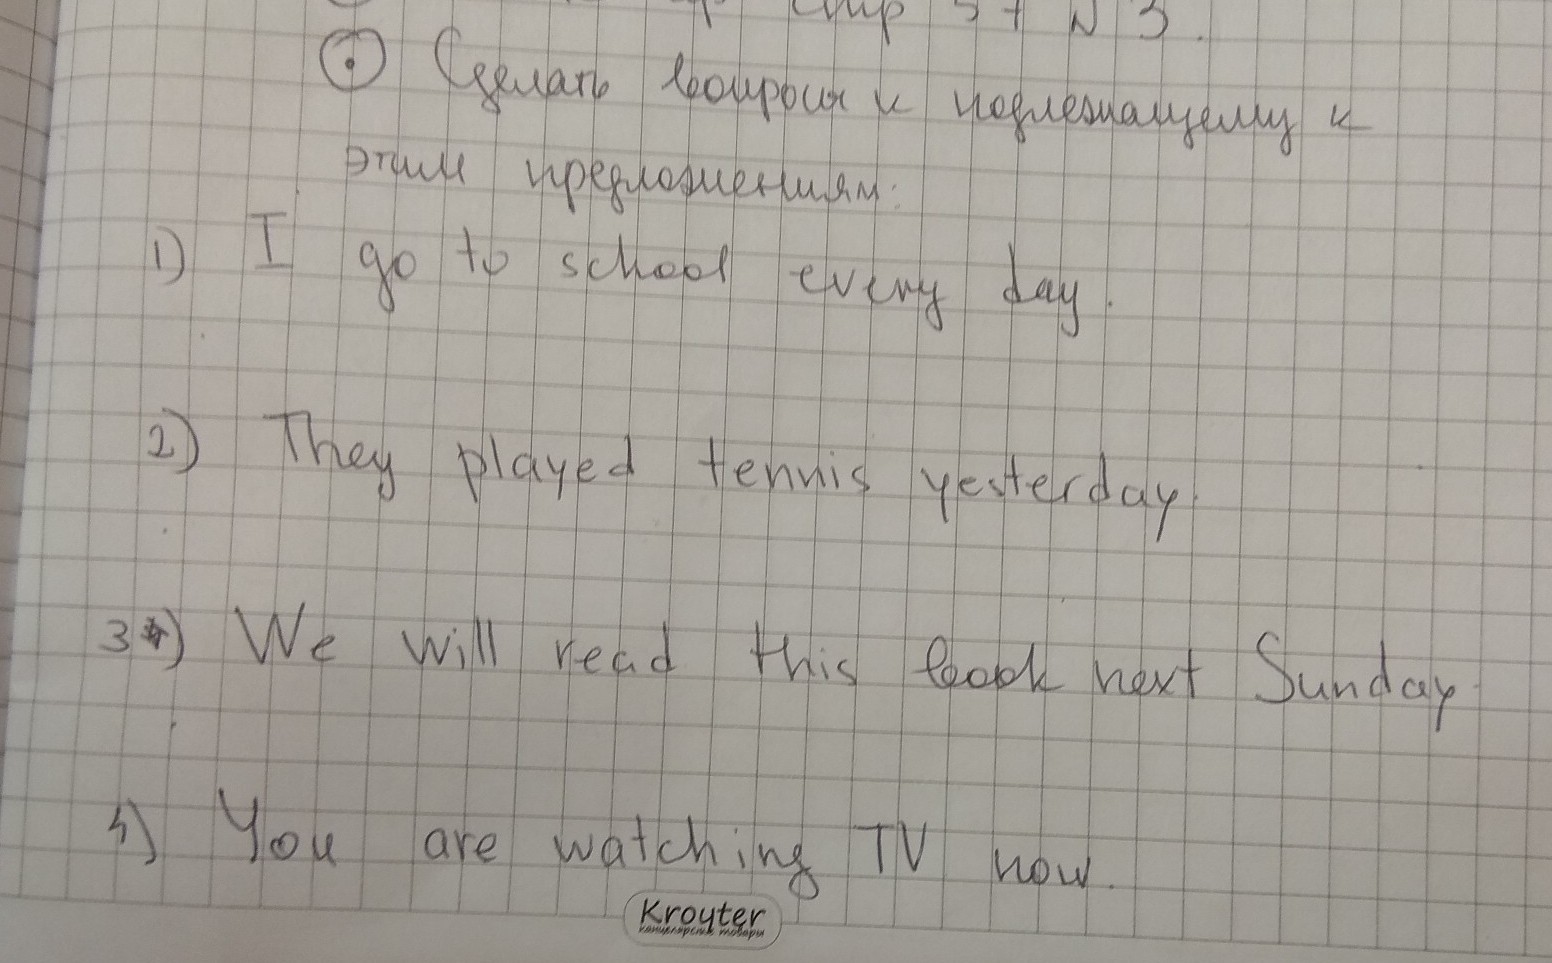 стр 57 N 3.
Сделать вопросы к подлежащему к
этим предложениям:
1) I go to school every day.
2) They played tennis yesterday.
3) We will read this book next Sunday.
4) You are watching TV now.
Krouter
канцелярские товары